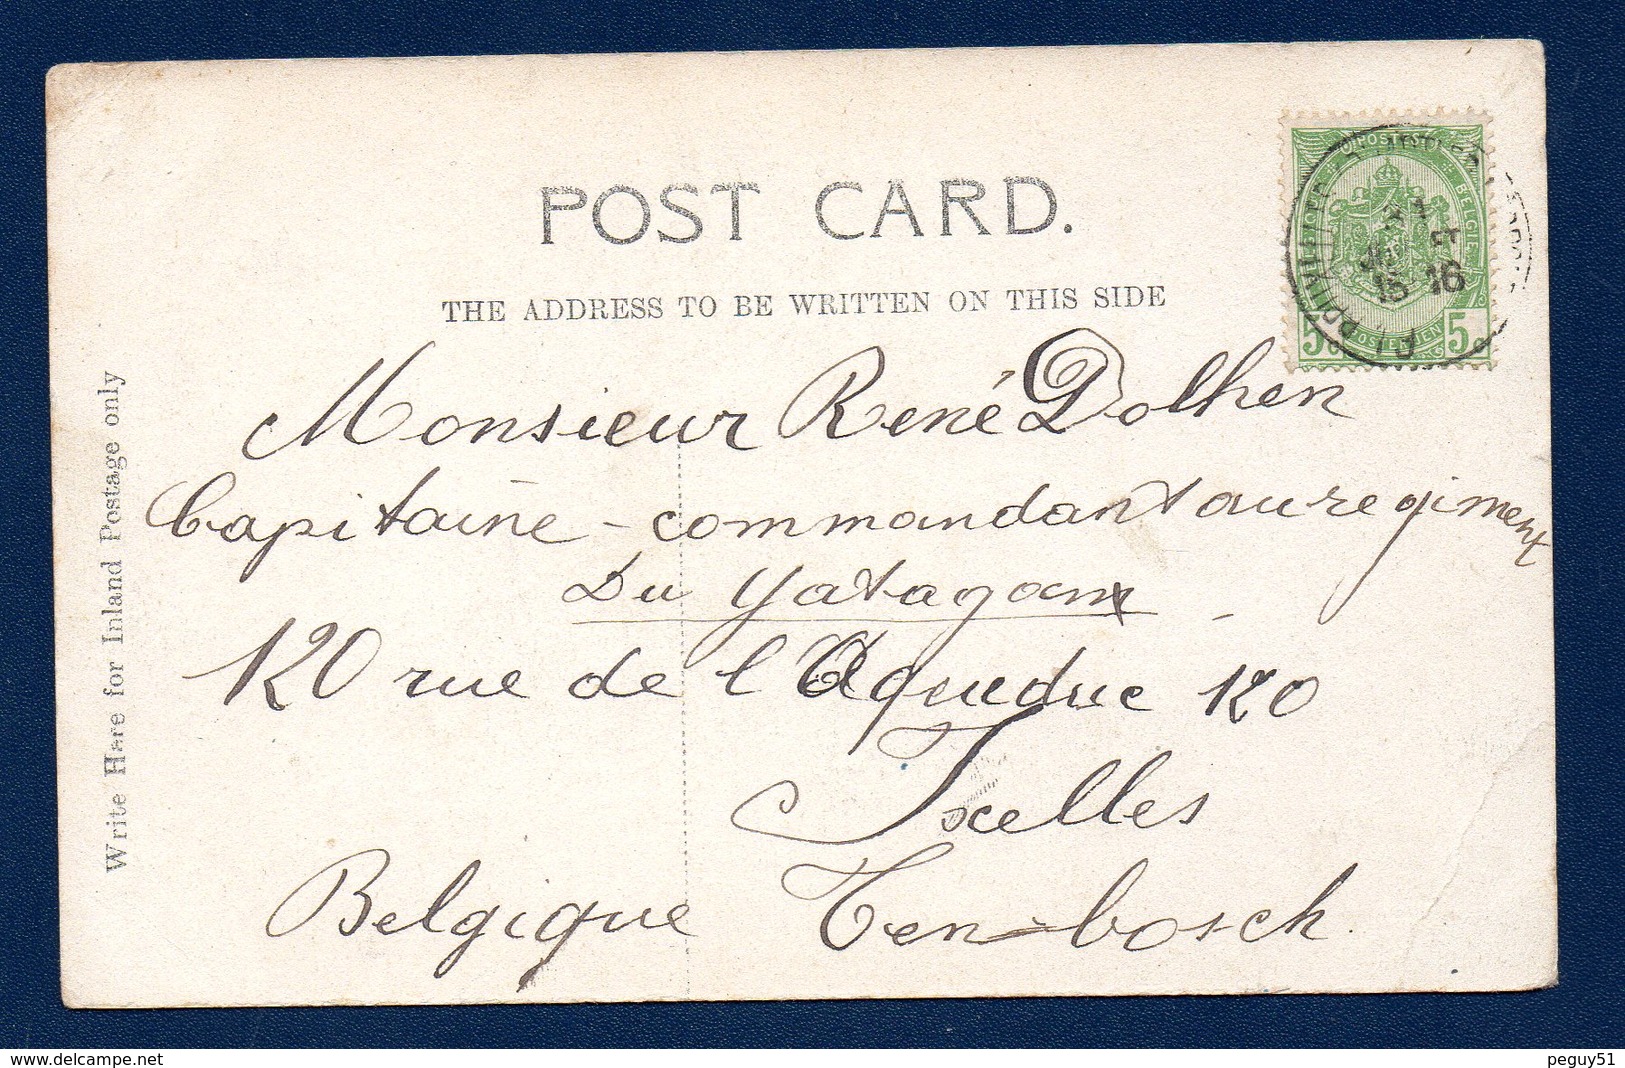 POST CARD.
THE ADDRESS TO BE WRITTEN ON THIS SIDE
Write Here for Inland Postage only
Monsieur René Dolhen
Capitaine - commandant au regiment
Du Yatagan
120 rue de l'Aqueduc 120
Ixelles
Belgique Ten-bosch.
POSTES BELGIQUE
5c 5c
16
delcampe.net
peguy51